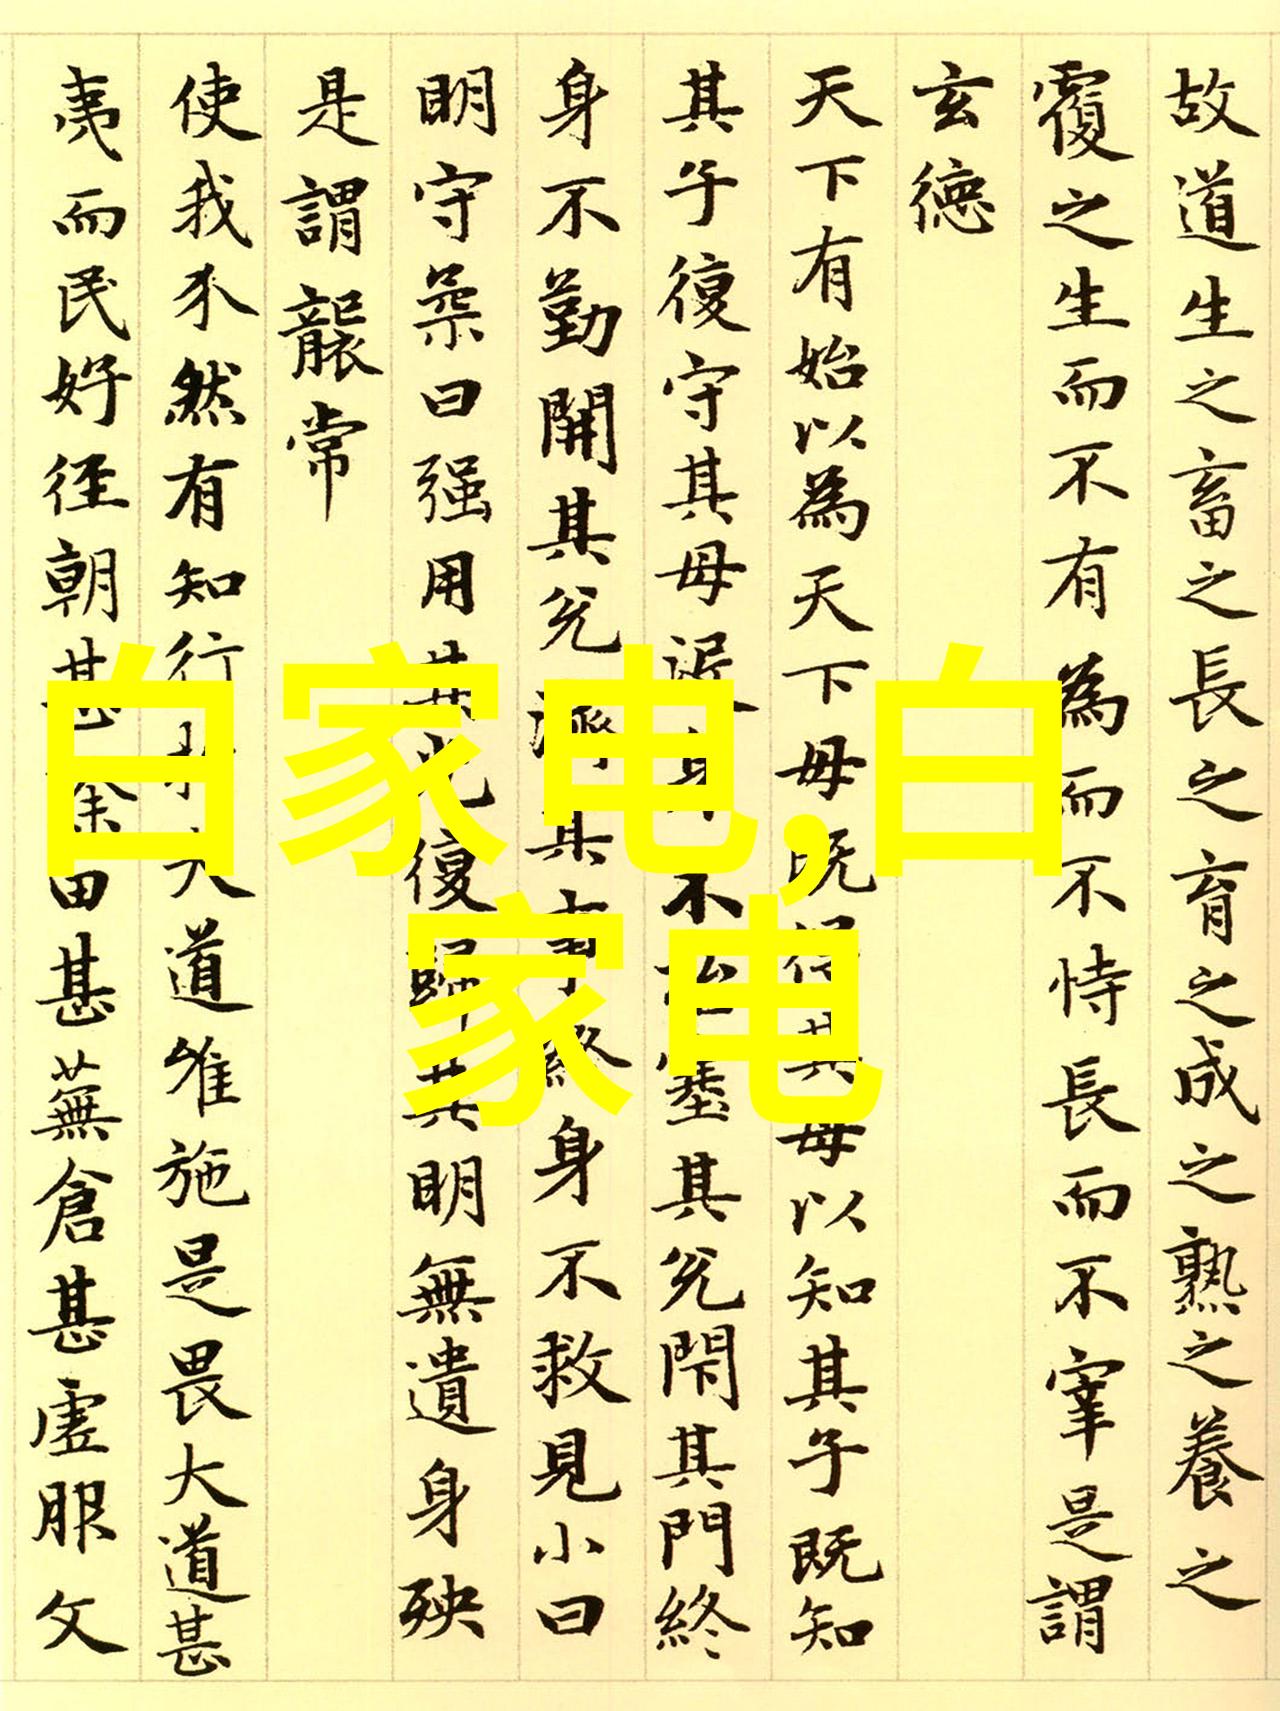 故道生之畜之長之育之成之熟之養之
覆之生而不有為而不恃長而不宰是謂
玄德
天下有始以為天下母既得其母以知其子既知
其子復守其母没身不殆塞其兌閇其門終
身不勤開其兌濟其事終身不救見小曰
明守柔曰强用其光復歸其明無遺身殃
是謂襲常
使我介然有知行於大道唯施是畏大道甚
夷而民好徑朝甚除田甚蕪倉甚虛服文
白家电,白
家电